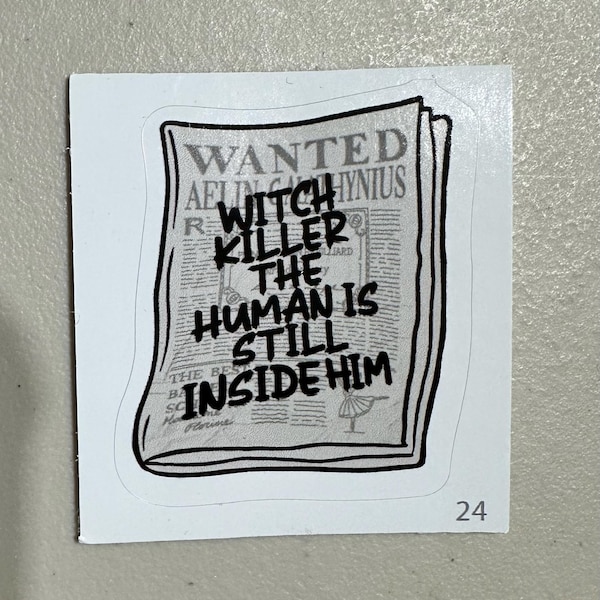 WANTED
AELIN GALATHYNIUS
WITCH
KILLER
THE
HUMAN IS
STILL
INSIDE HIM
R
LLIARD
THE BES
BA
SC
24